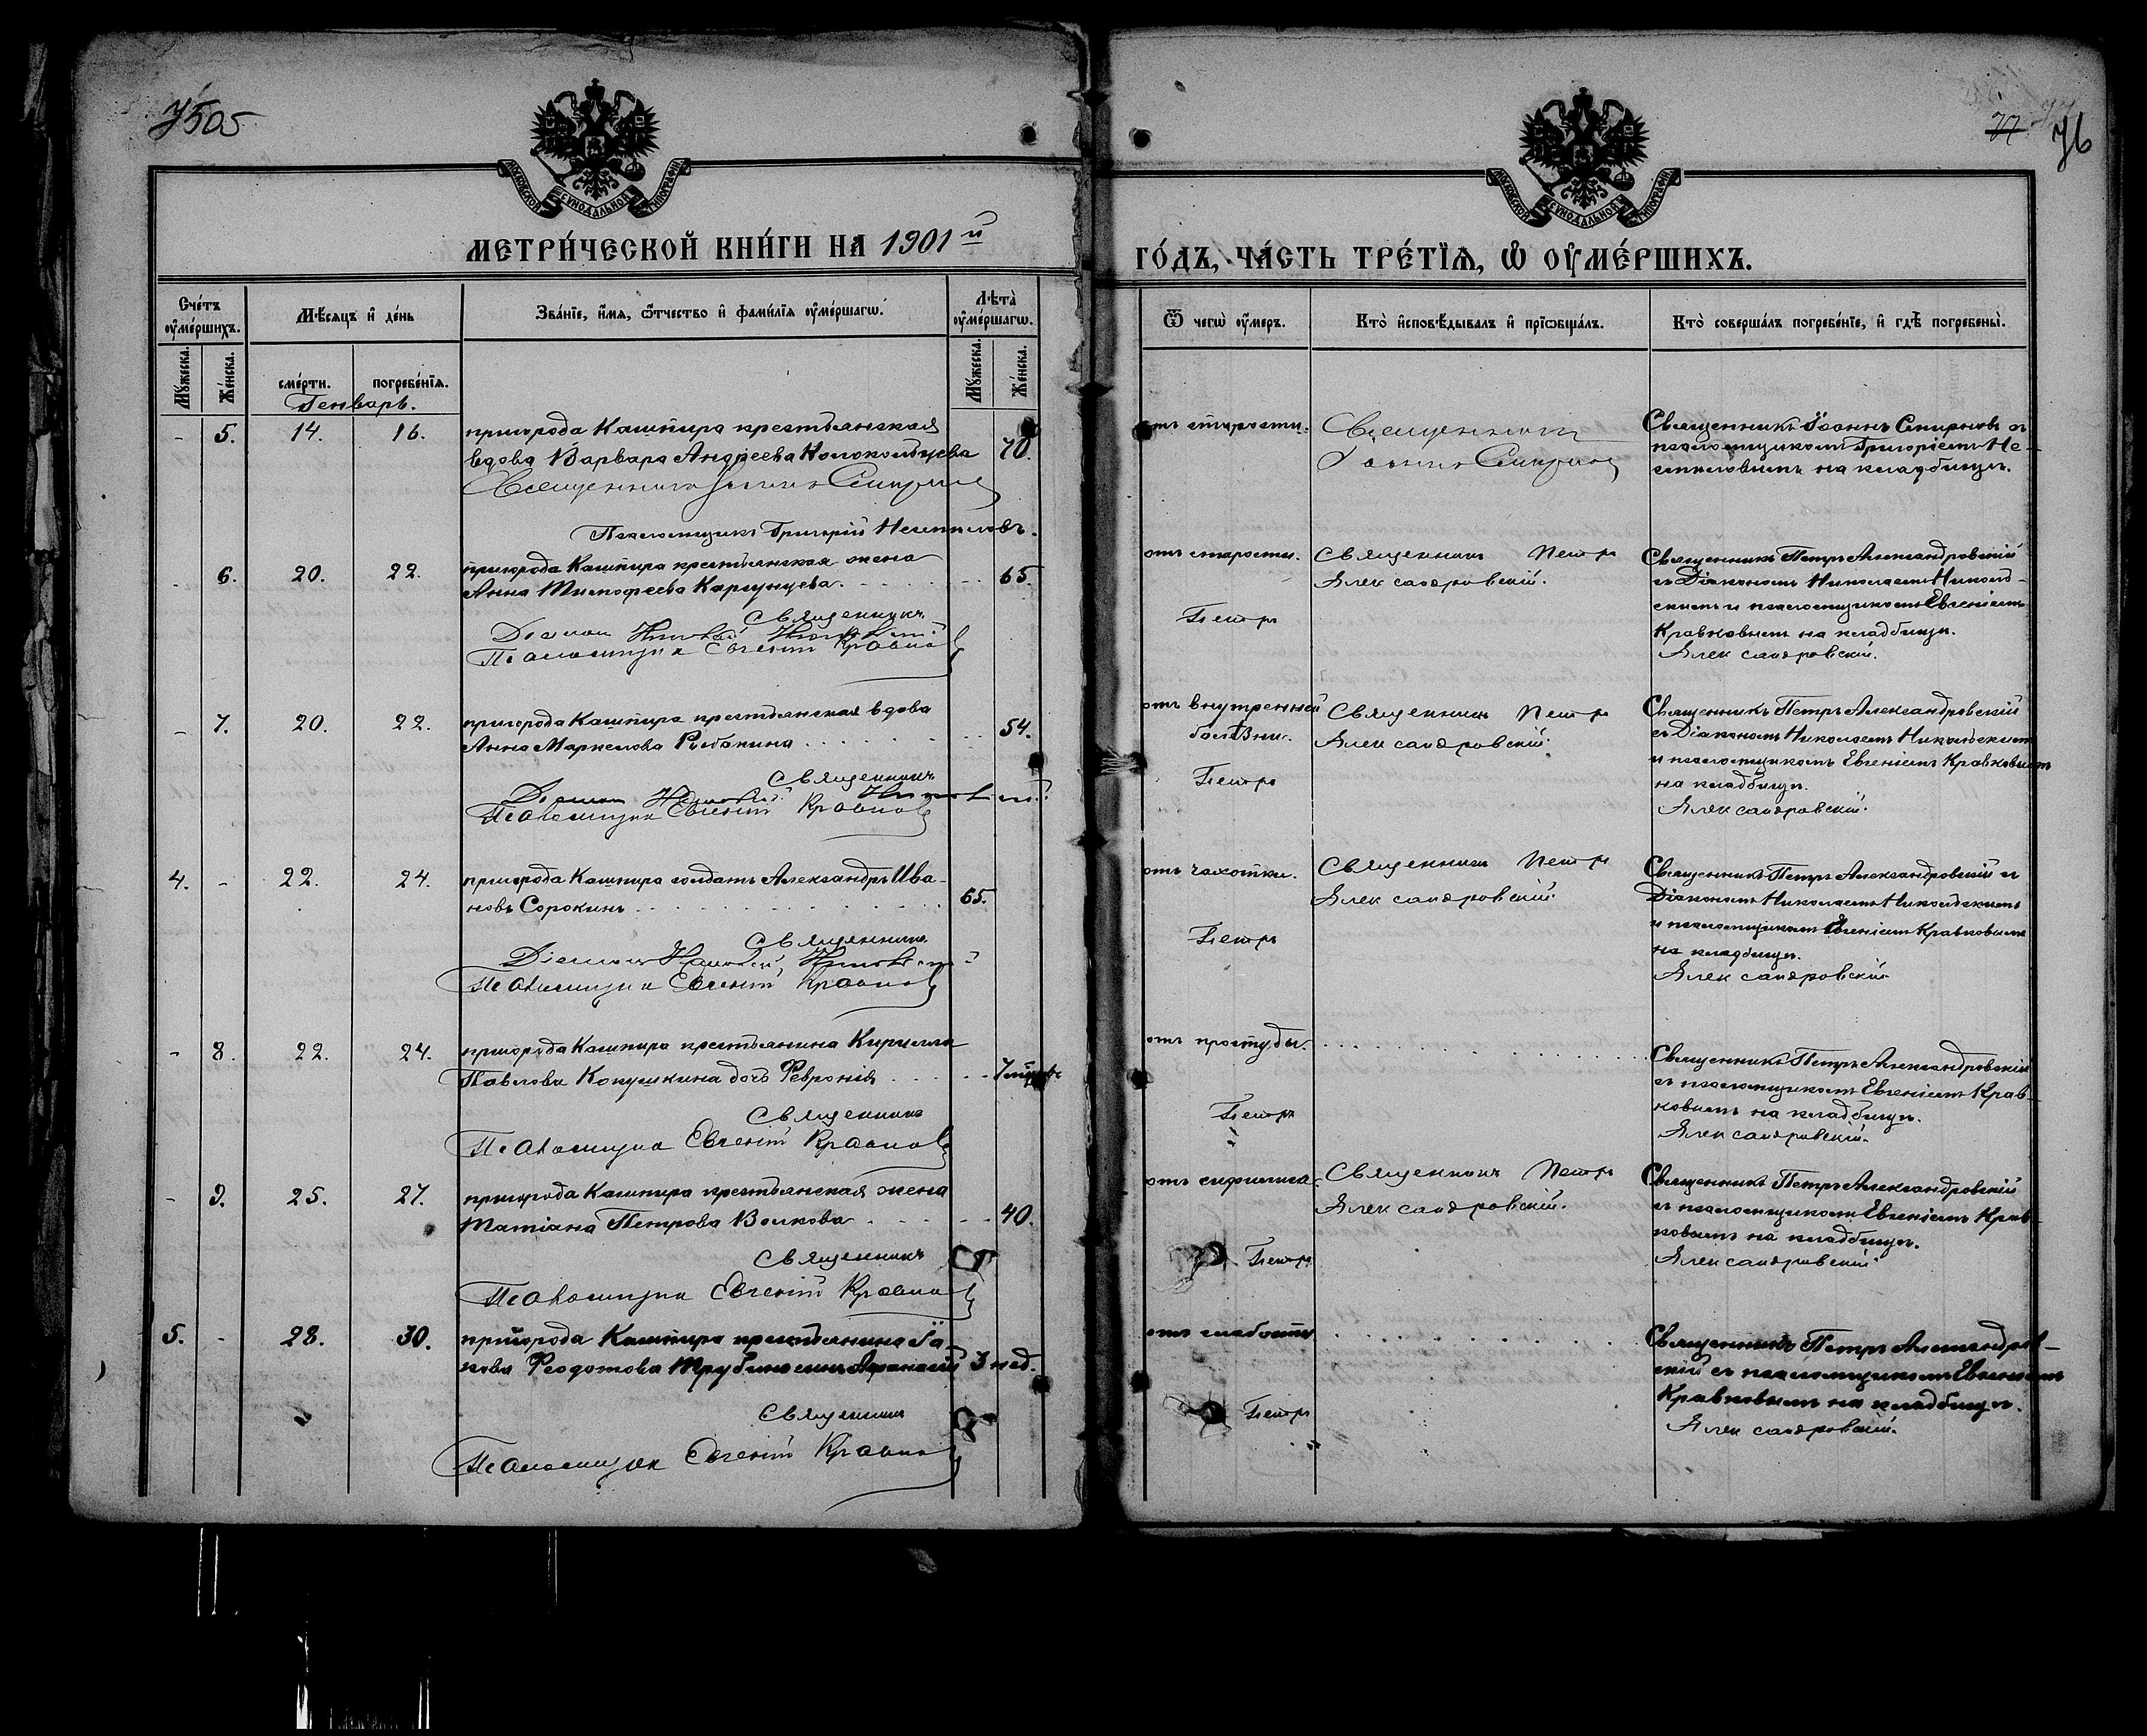 7505
77 76
МОСКОВСКОЙ СѴНОДАЛЬНОЙ ТИПОГРАФІИ
МОСКОВСКОЙ СѴНОДАЛЬНОЙ ТИПОГРАФІИ
МЕТРИ́ЧЕСКОЙ КНИ́ГИ НА 1901й
ГО́ДЪ, ЧА́СТЬ ТРЕ́ТЇѦ, Ѡ҆ ОУ҆МЕ́РШИХЪ.
Сче́тъ оу҆ме́ршихъ.
Мꙋ́жеска.
Же́нска.
Мѣ́сяцъ и҆ де́нь
сме́рти.
погребе́нїѧ.
Зва́нїе, и҆́мѧ, ѻ҆́тчество и҆ фами́лїѧ оу҆ме́ршагѡ.
Лѣта̀ оу҆ме́ршагѡ.
Мꙋ́жеска.
Же́нска.
Ѿ чегѡ̀ оу҆́меръ.
Кто̀ и҆сповѣ́дывалъ и҆ прїѡбща́лъ.
Кто̀ соверша́лъ погребе́нїе, и҆ гдѣ̀ погребены̀.
Генварь.
- 5. 14. 16.
пригорода Кашпира крестьянская
вдова Варвара Андреева Колокольцева 70.
Священникъ Іоаннъ Смирнов
Псаломщикъ Григорій
отъ старости.
Священникъ
Іоаннъ Смирнов
Священникъ Іоаннъ Смирновъ съ
псаломщикомъ Григоріемъ Не-
на кладбищѣ.
- 6. 20. 22.
пригорода Кашпира крестьянская жена
Анна Тимофеева Каргунцева. 65.
Священникъ
Діаконъ Николай Никольскій
Псаломщикъ Евгеній Кравков
отъ старости.
Петръ
Священникъ Петръ
Александровскій.
Священникъ Петръ Александровскій
съ Діакономъ Николаемъ Николь-
скимъ и псаломщикомъ Евгеніемъ
Кравковымъ на кладбищѣ.
Александровскій.
- 7. 20. 22.
пригорода Кашпира крестьянская вдова
Анна Маркелова Рыбакина 54.
Священникъ
Діаконъ Николай Никольскій
Псаломщикъ Евгеній Кравков
отъ внутренней
болѣзни.
Петръ
Священникъ Петръ
Александровскій.
Священникъ Петръ Александровскій
съ Діакономъ Николаемъ Никольскимъ
и псаломщикомъ Евгеніемъ Кравковымъ
на кладбищѣ.
Александровскій.
4. - 22. 24.
пригорода Кашпира солдатъ Александръ Ива-
новъ Сорокинъ 65.
Священникъ
Діаконъ Николай Никольскій
Псаломщикъ Евгеній Кравков
отъ чахотки.
Петръ
Священникъ Петръ
Александровскій.
Священникъ Петръ Александровскій съ
Діакономъ Николаемъ Никольскимъ
и псаломщикомъ Евгеніемъ Кравковымъ
на кладбищѣ.
Александровскій
- 8. 22. 24.
пригорода Кашпира крестьянина Кирилла
Павлова Копушкина дочь Февронія 7
Священникъ
Псаломщикъ Евгеній Кравков
отъ простуды.
Петръ
Священникъ Петръ Александровскій
съ псаломщикомъ Евгеніемъ Крав-
ковымъ на кладбищѣ.
Александровскій.
- 9. 25. 27.
пригорода Кашпира крестьянская жена
Татіана Петрова Волкова 40.
Священникъ
Псаломщикъ Евгеній Кравков
отъ сифилиса.
Петръ
Священникъ Петръ
Александровскій.
Священникъ Петръ Александровскій
съ псаломщикомъ Евгеніемъ Крав-
ковымъ на кладбищѣ.
Александровскій
5. - 28. 30.
пригорода Кашпира крестьянина Іа-
кова Феодотова Трубина сынъ Афанасій 3 нед.
Священникъ
Псаломщикъ Евгеній Кравков
отъ слабости
Петръ
Священникъ Петръ Александров-
скій съ псаломщикомъ Евгеніемъ
Кравковымъ на кладбищѣ.
Александровскій.